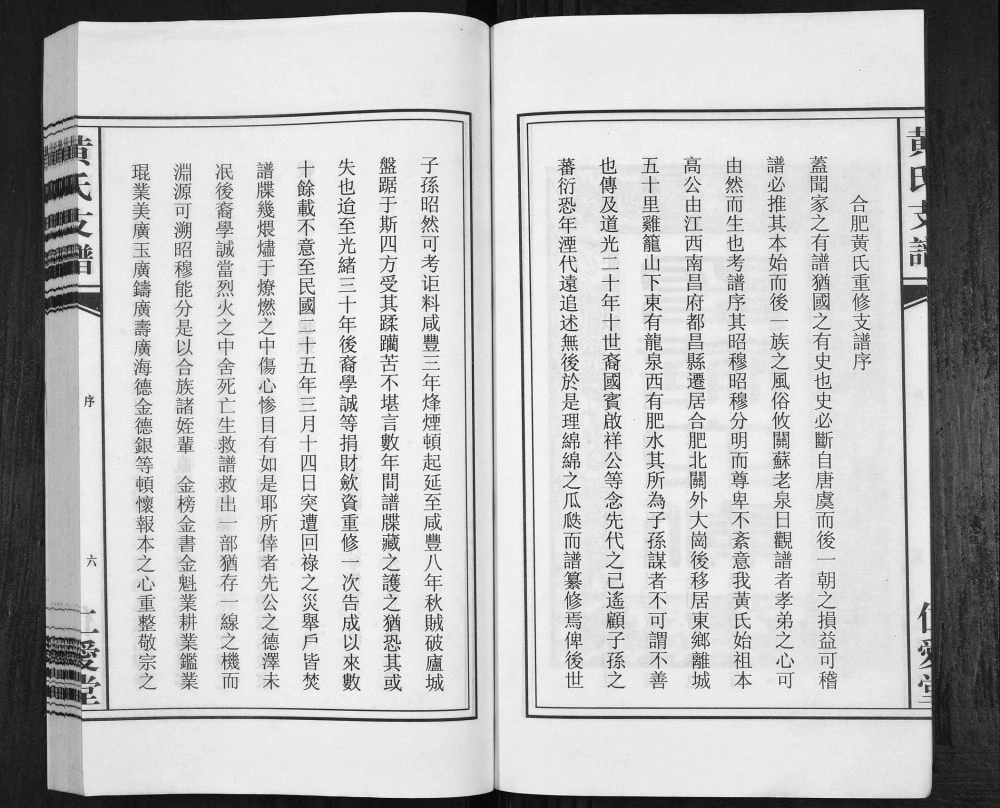 黃氏支譜
仁愛堂
合肥黃氏重修支譜序
蓋聞家之有譜猶國之有史也史必斷自唐虞而後一朝之損益可稽
譜必推其本始而後一族之風俗攸關蘇老泉曰觀譜者孝弟之心可
由然而生也考譜序其昭穆昭穆分明而尊卑不紊意我黃氏始祖本
高公由江西南昌府都昌縣遷居合肥北關外大崗後移居東鄉離城
五十里雞籠山下東有龍泉西有肥水其所為子孫謀者不可謂不善
也傳及道光二十年十世裔國賓啟祥公等念先代之已遙顧子孫之
蕃衍恐年湮代遠追述無後於是理綿綿之瓜瓞而譜纂修焉俾後世
子孫昭然可考讵料咸豐三年烽煙頓起延至咸豐八年秋賊破廬城
盤踞于斯四方受其蹂躪苦不堪言數年間譜牒藏之護之猶恐其或
失也迨至光緒三十年後裔學誠等捐財歛資重修一次告成以來數
十餘載不意至民國二十五年三月十四日突遭回祿之災舉戶皆焚
譜牒幾煨燼于燎燃之中傷心慘目有如是耶所倖者先公之德澤未
泯後裔學誠當烈火之中舍死亡生救譜救出一部猶存一線之機而
淵源可溯昭穆能分是以合族諸姪輩 金榜金書金魁業耕業鑑業
琨業美廣玉廣鑄廣壽廣海德金德銀等頓懷報本之心重整敬宗之
黃氏支譜
序
六
仁愛堂